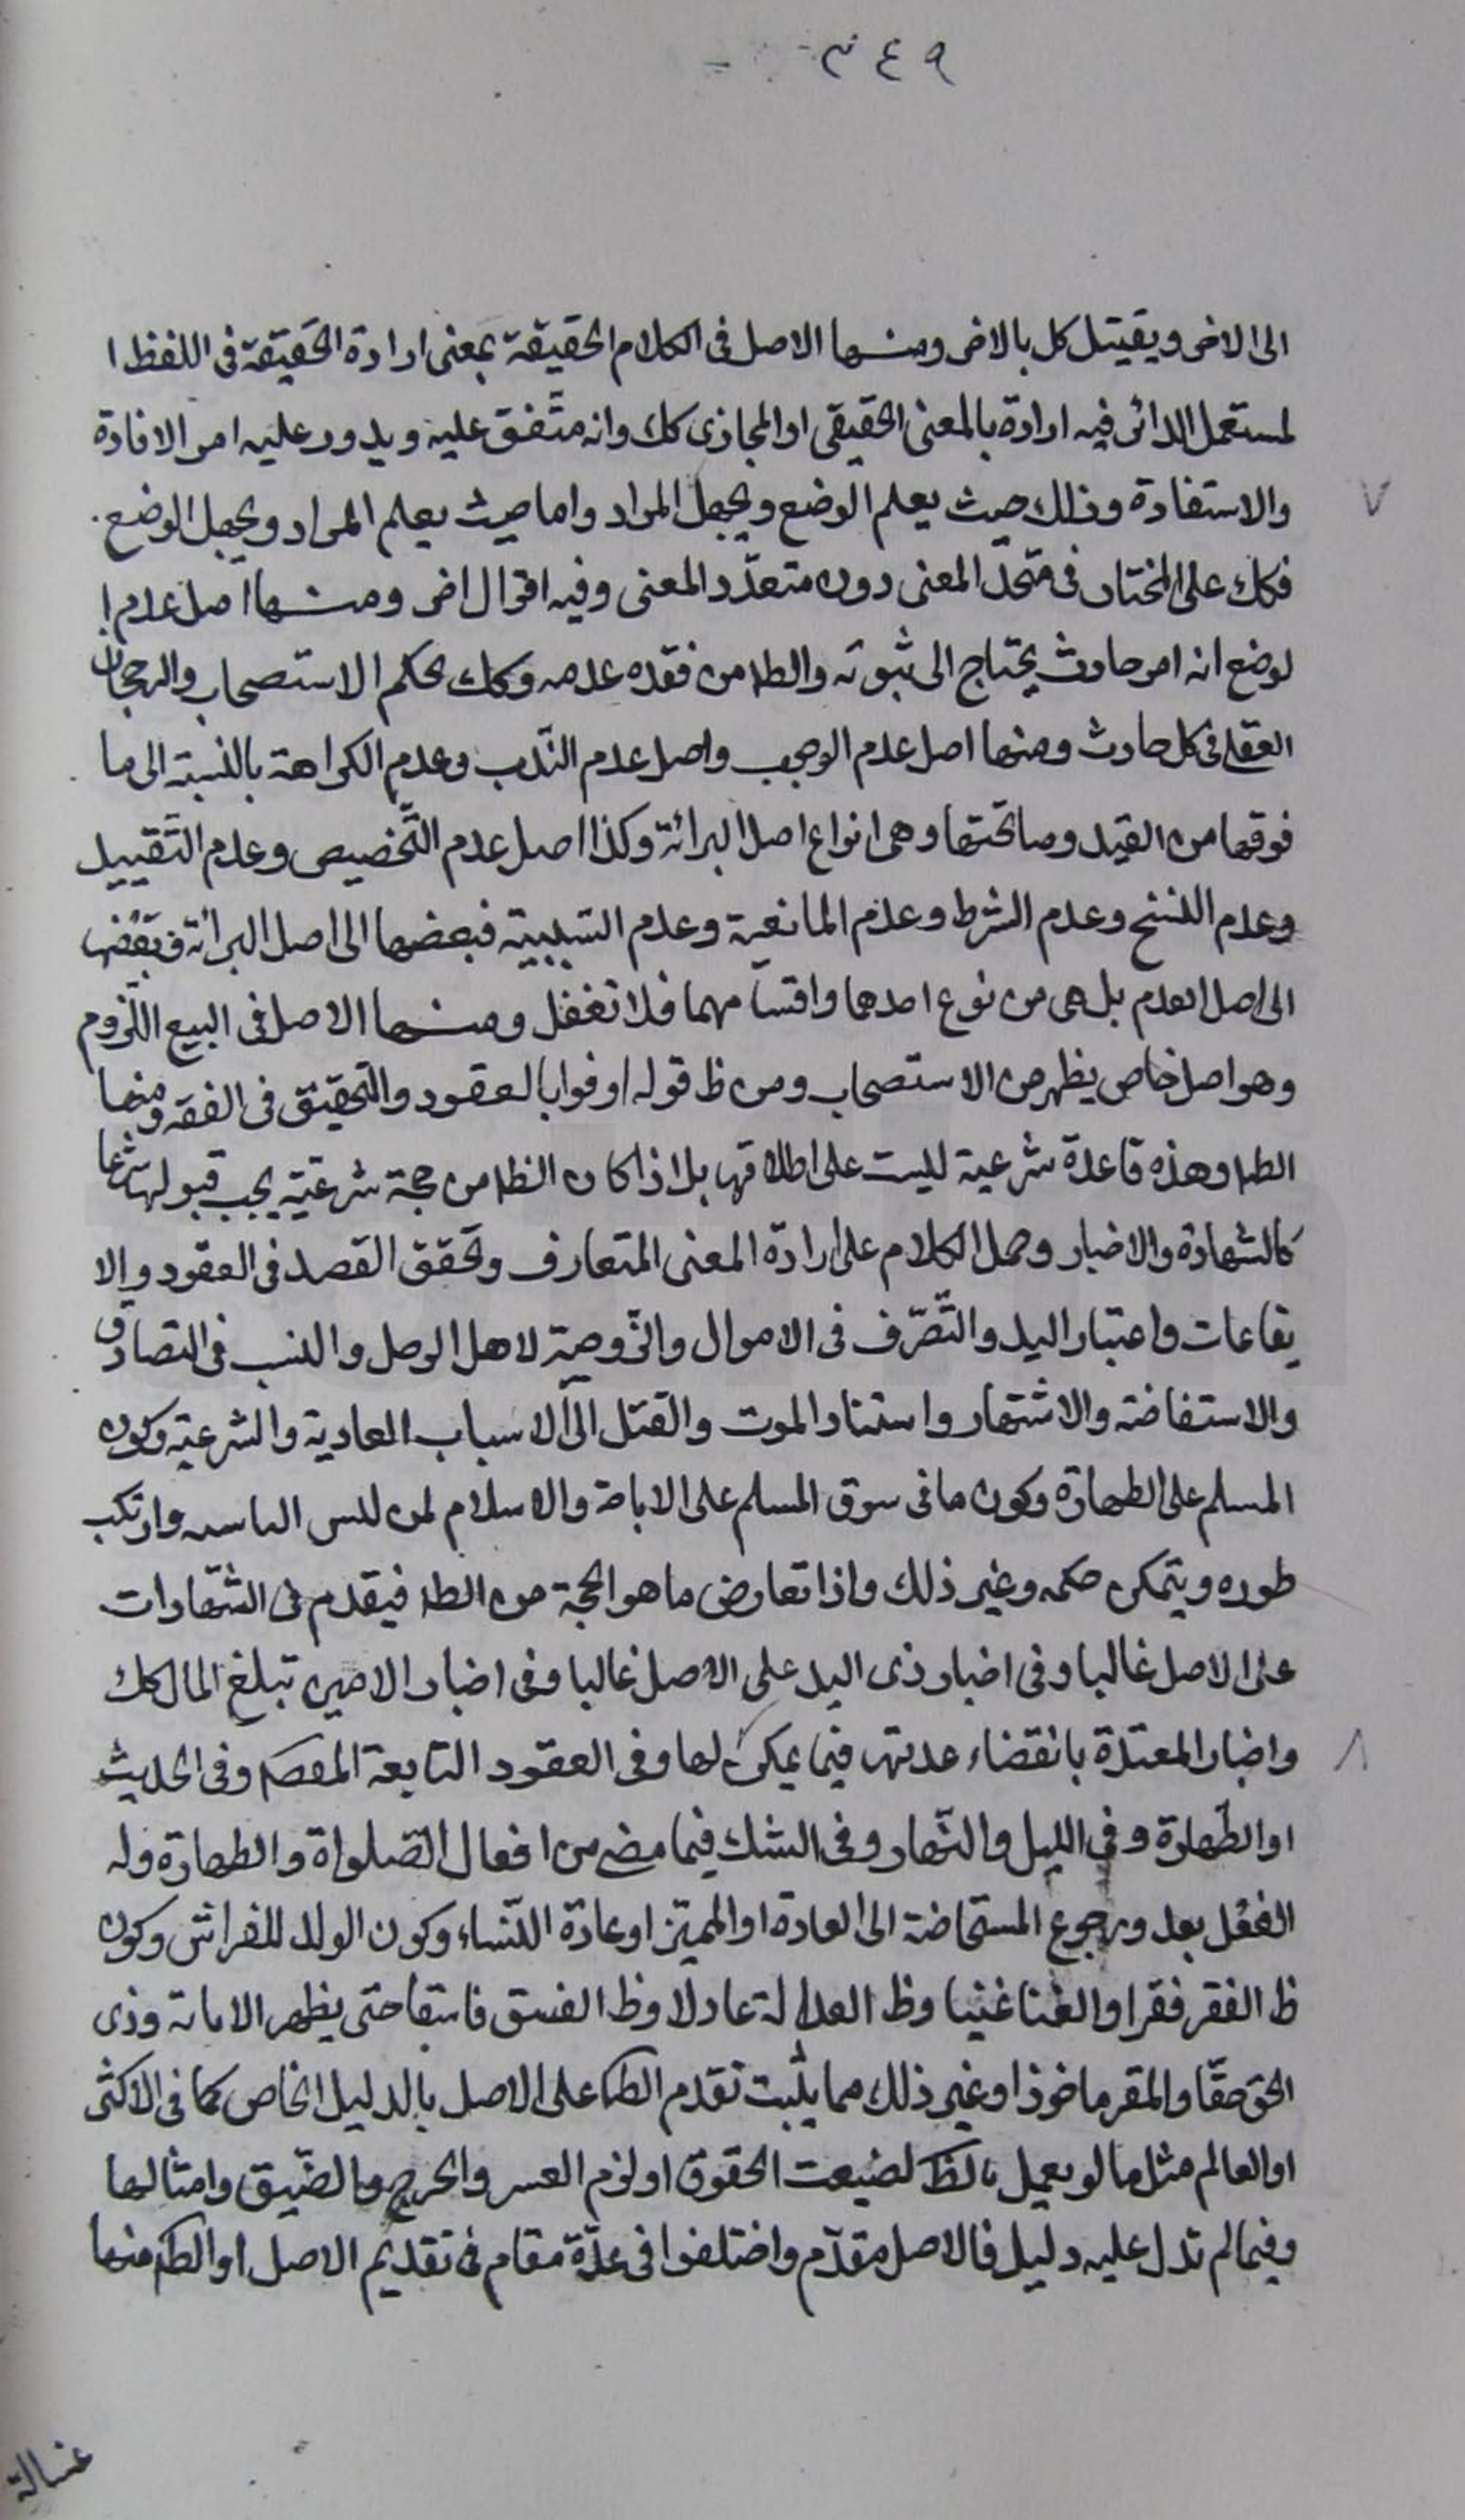 ٣٤٩
الى الاخر ويقيتل كل بالاخر ومنها الاصل فى الكلام الحقيقة بمعنى ارادة الحقيقة فى اللفظ ا
لمستعمل الدائر فيه ارادة بالمعنى الحقيقى او المجازى كك وانه متّفق عليه ويدور عليه امر الافادة
والاستفادة وذلك حيث يعلم الوضع ويجهل المراد واما حيث يعلم المراد ويجهل الوضع
فكك على المختار فى متحّد المعنى دون متعدّد المعنى وفيه اقوال اخر ومنها اصل عدم ا
لوضع انه امر حادث يحتاج الى ثبوته والظ من فقده عدمه وكك بحكم الاستصحاب والرجحان
العقلى فى كل حادث ومنها اصل عدم الوجوب واصل عدم النّدب وعدم الكراهة بالنسبة الى ما
فوقها من القيد وما تحتها وهى انواع اصل البرائة وكذا اصل عدم التّخصيص وعدم التّقييد
وعدم النسخ وعدم الشرط وعدم المانعية وعدم السّببية فبعضها الى اصل البرائة وبعضها
الى اصل العدم بل هى من نوع احدهما واقسامهما فلا تغفل ومنها الاصل فى البيع اللّزوم
وهو اصل خاص يظهر من الاستصحاب ومن ظ قوله اوفوا بالعقود والتحقيق فى الفقه ومنها
الظ وهذه قاعدة شرعية ليست على اطلاقها بل اذا كان الظ من حجة شرعيّة يجب قبولها شرعا
كالشهادة والاخبار وحمل الكلام على ارادة المعنى المتعارف وتحقق القصد فى العقود والا
يقاعات واعتبار اليد والتّصّرف فى الاموال والزّوجية لاهل الوصل والنسب فى التصادق
والاستفاضة والاشتهار واستناد الموت والقتل الى الاسباب العادية والشرعية وكون
المسلم على الطهارة وكون ما فى سوق المسلم على الاباحة والاسلام لمن لبس الباسه وارتكب
طوره ويتمكن حكمه وغير ذلك واذا تعارض ما هو الحجة من الظ فيقدم فى الشّهادات
على الاصل غالبا وفى اخبار ذى اليد على الاصل غالبا وفى اخبار الامين تبلغ المال كك
واخبار المعتدّة بانقضاء عدتها فيما يمكن لها وفى العقود التابعة وفى الحديث
او الطّهارة وفى الليل والنّهار وفى الشك فيما مضى من افعال الصّلواة والطهارة وله
الفعل بعد ورجوع المستحاضة الى العادة او المميّز او عادة النّساء وكون الولد للفراش وكون
ظ الفقر فقرا والغنا غنيا وظ العدالة عادلا وظ الفسق فاسقا حتى يظهر الامانة وذى
الحق حقّا والمقر ماخوذا وغير ذلك مما يثبت تقدم الظ على الاصل بالدليل الخاص كما فى الاكثر
او العالم مثل ما لو يعمل بالظ لضيعت الحقوق او لزم العسر والحرج والضّيق وامثالها
وفيما لم تدل عليه دليل فالاصل مقدّم واختلفوا فى عدّة مقام فى تقديم الاصل او الظ منها
غسالة